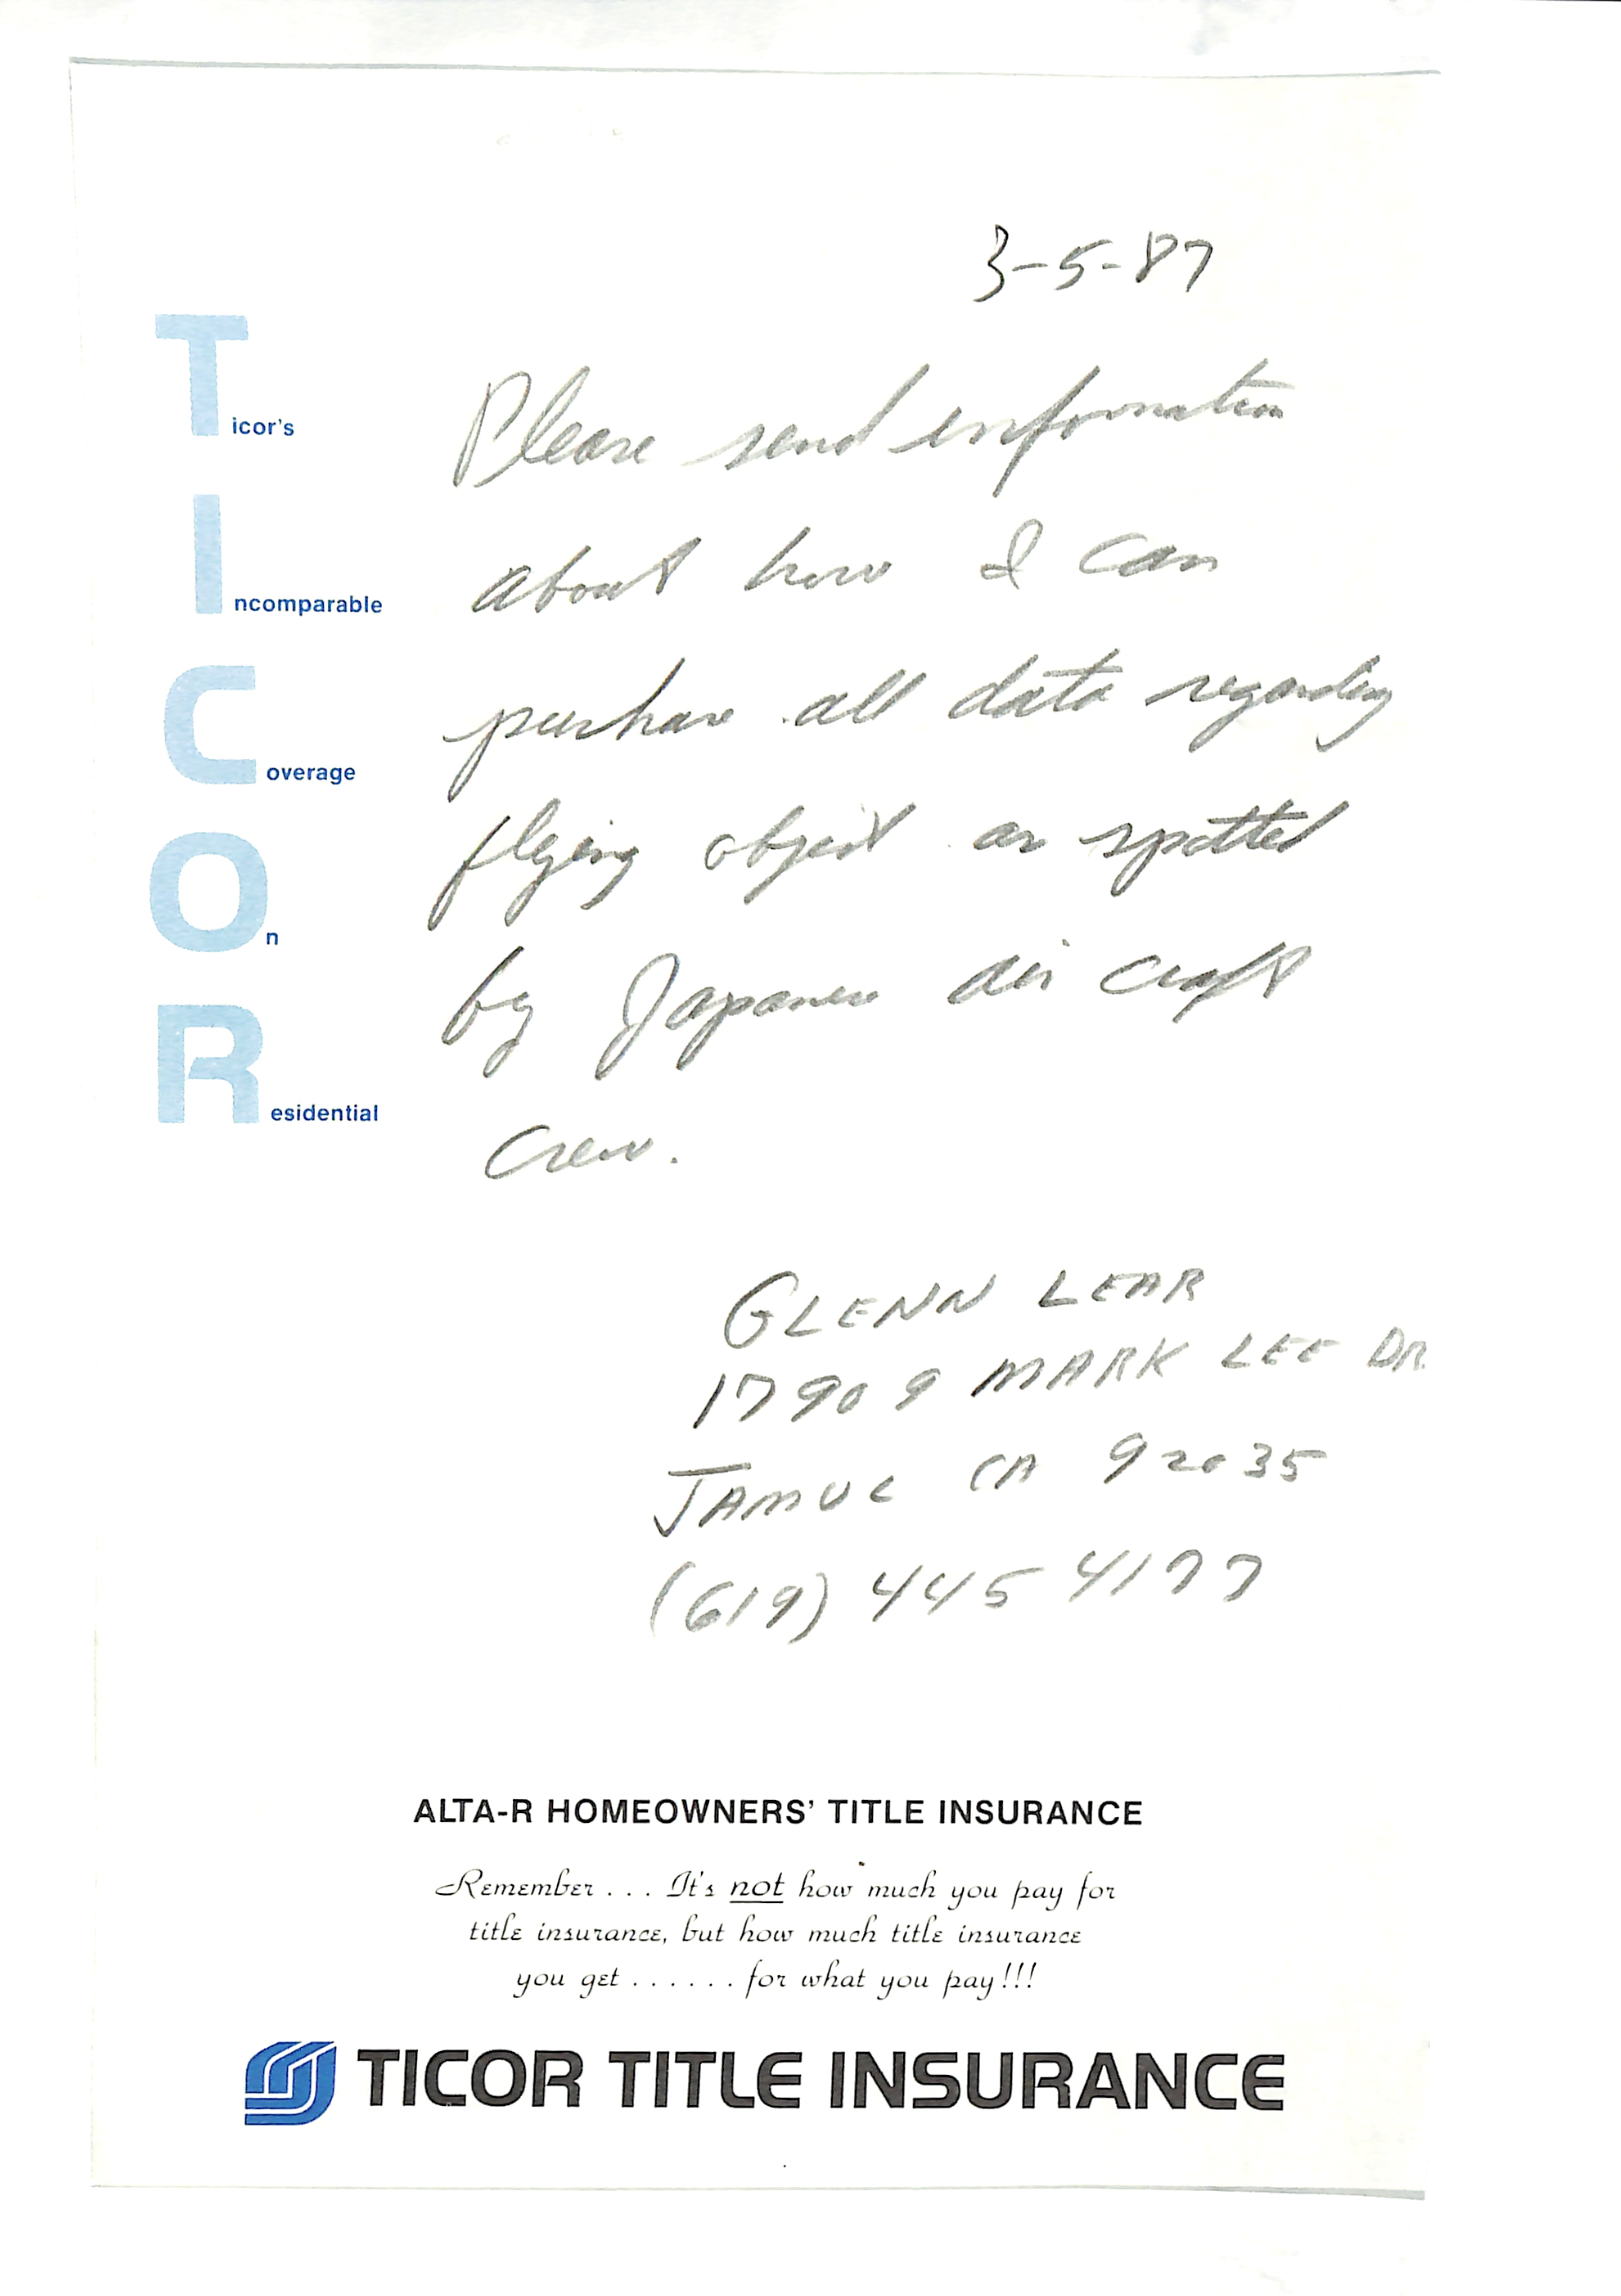 3-5-87
Ticor's
Incomparable
Coverage
On
Residential
Please send information
about how I can
purchase all data regarding
flying object as spotted
by Japanese air craft
crew.
GLENN LEAR
17909 MARK LEE DR.
JAMUL CA 92035
(619) 445 4177
ALTA-R HOMEOWNERS' TITLE INSURANCE
Remember . . . It's not how much you pay for
title insurance, but how much title insurance
you get . . . . . . for what you pay!!!
TICOR TITLE INSURANCE